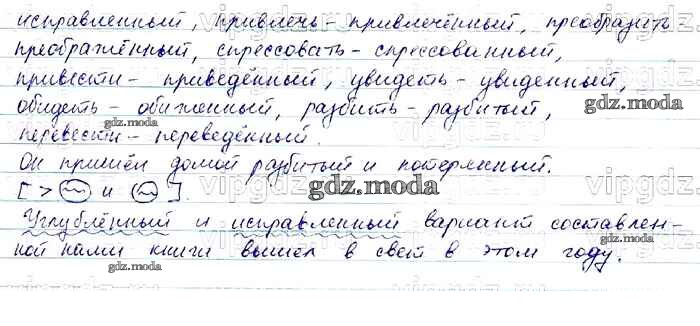 исправленный, привлечь – привлечённый, преобразить
преображённый, спрессовать – спрессованный,
привести – приведённый, увидеть – увиденный,
обидеть – обиженный, разбить – разбитый,
gdz.moda
gdz.moda
перевести – переведённый.
Он пришёл домой разбитый и потерянный.
[ > и ].
gdz.moda
vipgdz
Углублённый и исправленный вариант составлен-
ной нами книги вышел в свет в этом году.
gdz.moda
gdz.moda